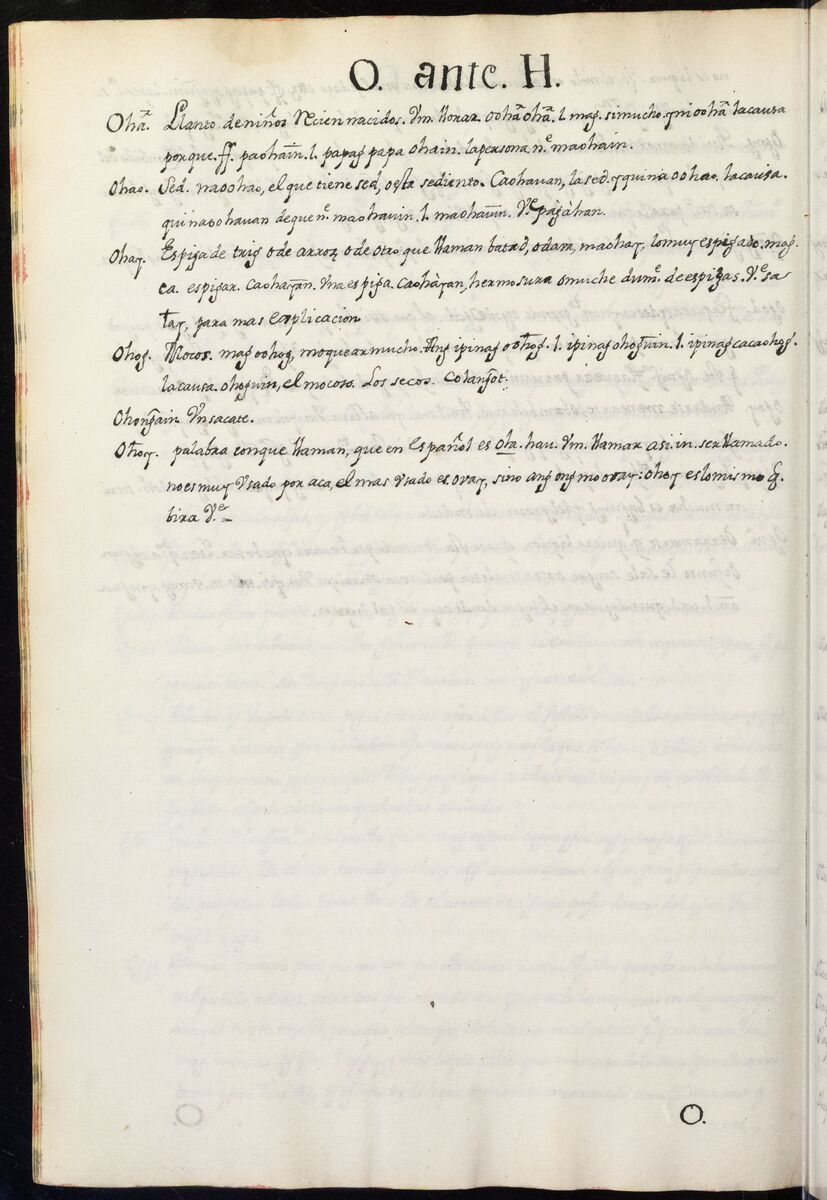 O. ante. H.
Ohã. Llanto de niños Recien nacidos. Vm. llorar. oohã ohã. l. mag. si mucho. yni oohã la causa
porque. ff. paohaĩn. l. papag papa ohain. la persona. n.e maohain.
Ohao. Sed. naoohao, el que tiene sed, o esta sediento. Caohauan, la sed. yquina oohao. la causa.
quinaoohauan de que n.e maohauin. l. maohauĩn. V.e pàgàhan.
Ohay. Espiga de trig o de arroz, o de otro que llaman batad, o dava, maohay, lo muy espigado. mag.
ca. espigar. Caohayan. Vna espiga. Caohàyan, hermosura o muche dum.e de espigas. V.e sa
tay, para mas explicacion
Ohog. Mocos. mag oohog, moquear mucho. Ang ipinag oohog. l. ipinag ohoguin. l. ipinag cacaohog.
la causa. ohoguin, el mocoso. Los secos. Colang̃ot.
Ohong̃ain Vn sacate.
Ohoy. palabra con que llaman, que en español es ola. hau. Vm. llamar asi. in. ser llamado.
no es muy Vsado por aca, el mas Vsado es oyay, sino ang ong mo oyay: ohoy es lo mismo q̃.
bira V.e
O.